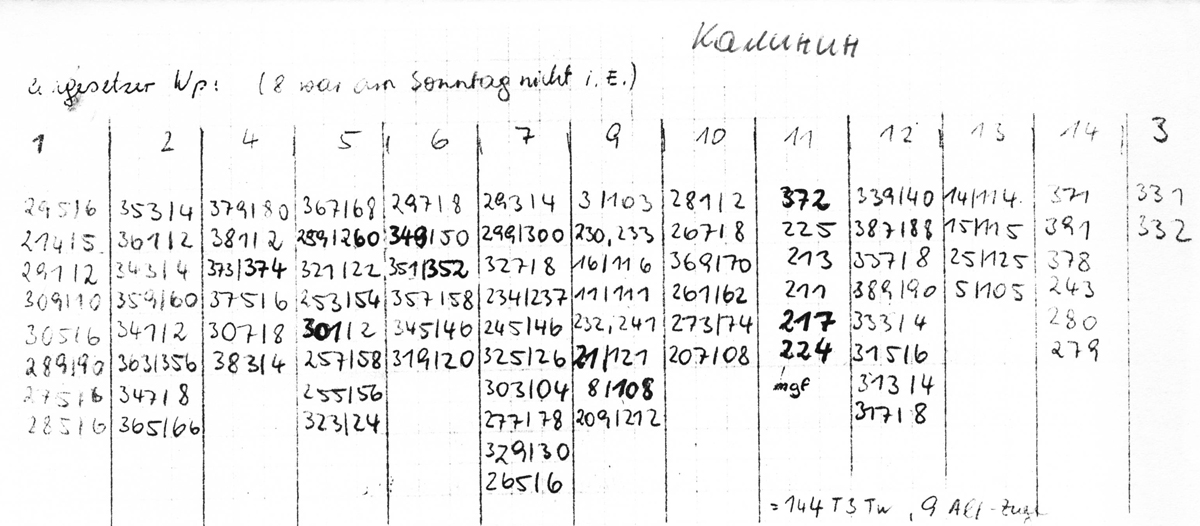 Калинин
eingesetzer Wp: (8 war am Sonntag nicht i.E.)
1 2 4 5 6 7 9 10 11 12 13 14 3
295/6 353/4 379/80 367/68 297/8 293/4 3/103 281/2 372 339/40 14/114 371 331
214/5 361/2 381/2 259/260 349/50 299/300 230,233 267/8 225 387/88 15/115 391 332
291/2 343/4 373/374 321/22 351/352 327/8 16/116 369/70 213 337/8 25/125 378
309/10 359/60 375/6 253/54 357/58 234/237 11/111 261/62 211 389/90 5/105 243
305/6 341/2 307/8 301/2 345/46 245/46 232,241 273/74 217 333/4 280
289/90 363/356 383/4 257/58 319/20 325/26 21/121 207/08 224 315/6 279
275/6 347/8 255/56 303/04 8/108 mgf 313/4
285/6 365/66 323/24 277/78 209/212 317/8
329/30
265/6
=144 T3 Tw, 9